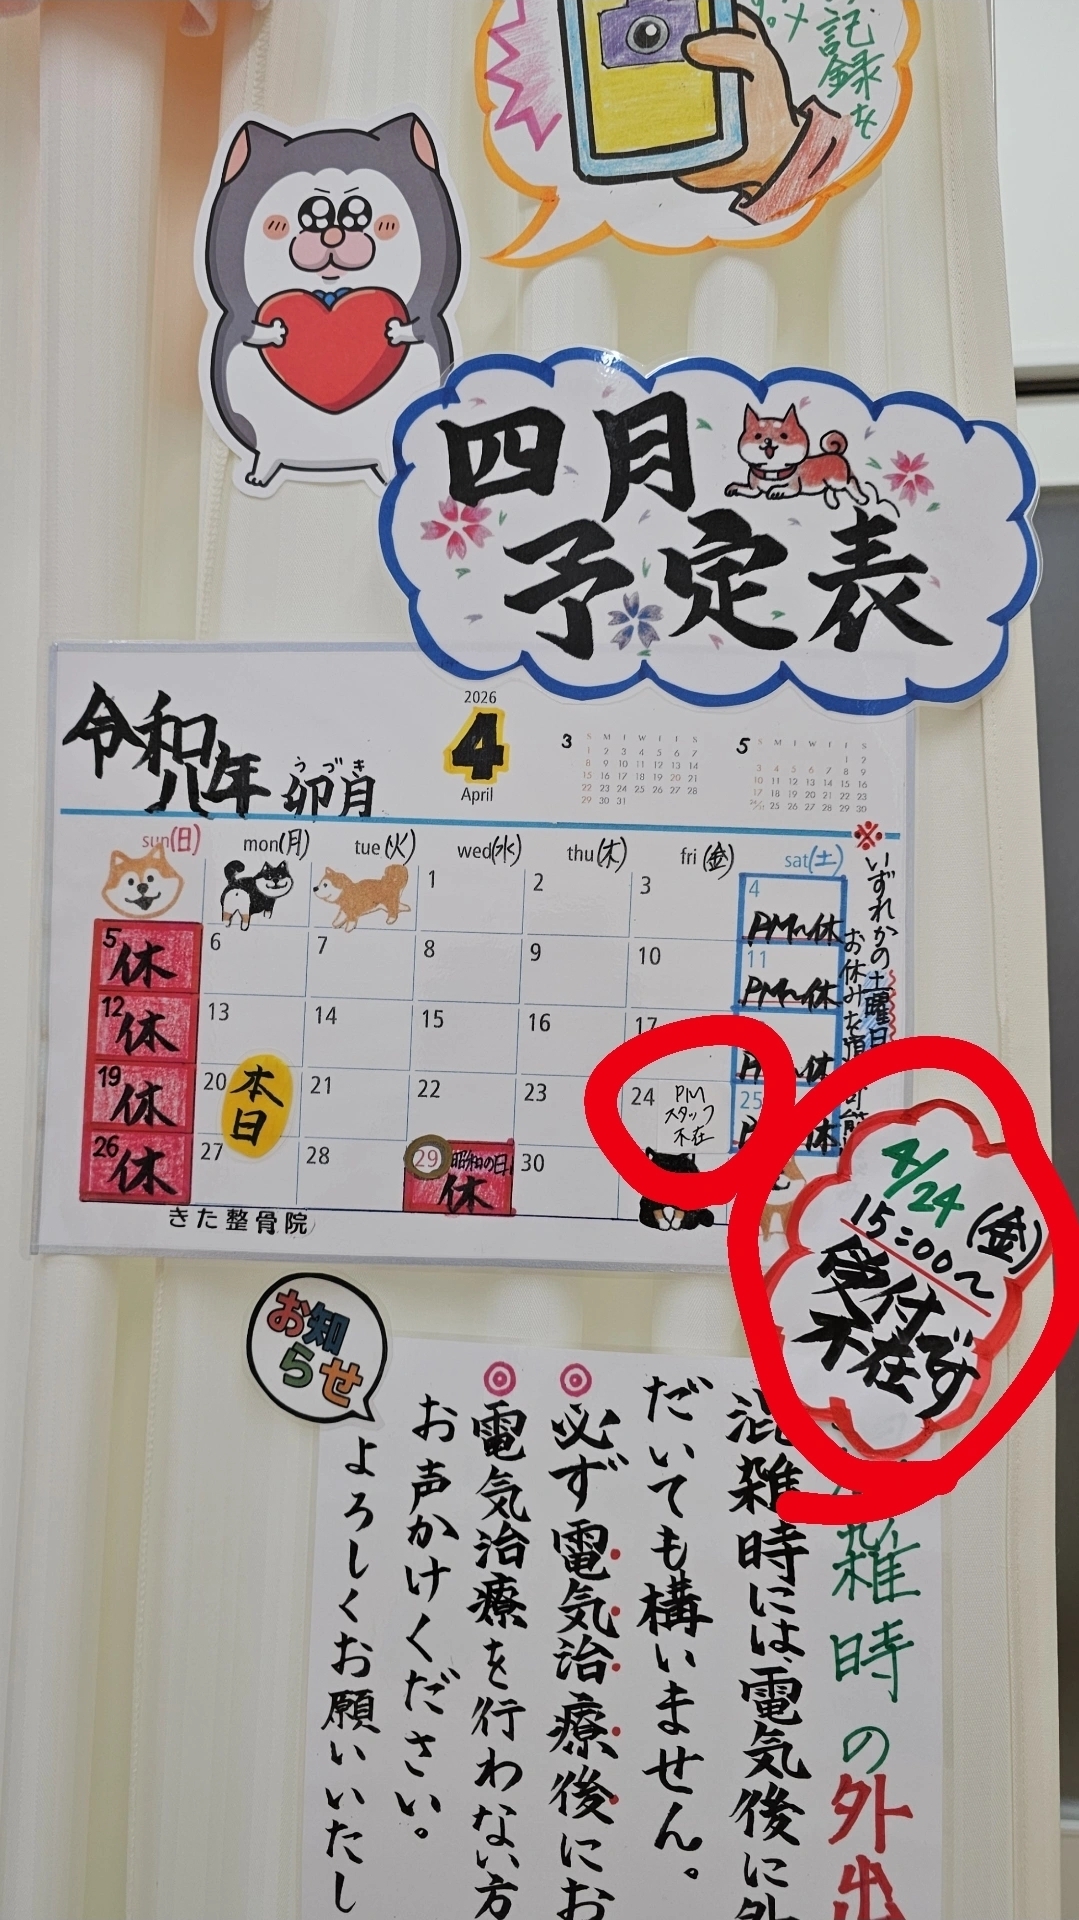 記
録を
四月
予定表
令和
八年 卯月
うづき
2026
4
April
3
S M T W T F S
1 2 3 4 5 6 7
8 9 10 11 12 13 14
15 16 17 18 19 20 21
22 23 24 25 26 27 28
29 30 31
5
S M T W T F S
1 2
3 4 5 6 7 8 9
10 11 12 13 14 15 16
17 18 19 20 21 22 23
24/31 25 26 27 28 29 30
sun(日) mon(月) tue(火) wed(水) thu(木) fri(金) sat(土)
1 2 3 4 PM〜休
5 休 6 7 8 9 10 11 PM〜休
12 休 13 14 15 16 17 休
19 休 20 本日 21 22 23 24 PM スタッフ 不在 25 休
26 休 27 28 29 昭和の日 休 30
きた整骨院
※いずれかの土曜日
お休みを頂
4/24(金)
15:00〜
受付
不在です
お知らせ
雑時の外出
混雑時には、電気後に外
だいても構いません。
◎必ず電気治療後にお
◎電気治療を行わない方
お声かけください。
よろしくお願いいたし